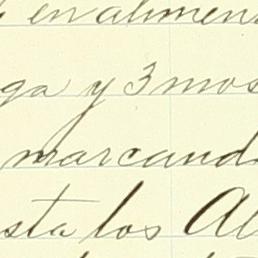 en alimen
ga y 3 mos
marcand
sta los Al